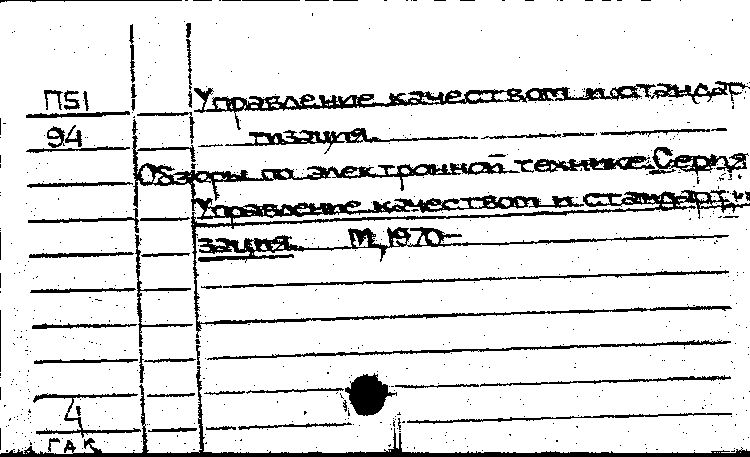 П51 Управление качеством и стандар
94 тизация.
Обзоры по электронной технике. Серия
Управление качеством и стандарти
зация. М., 1970—
4
ГАК